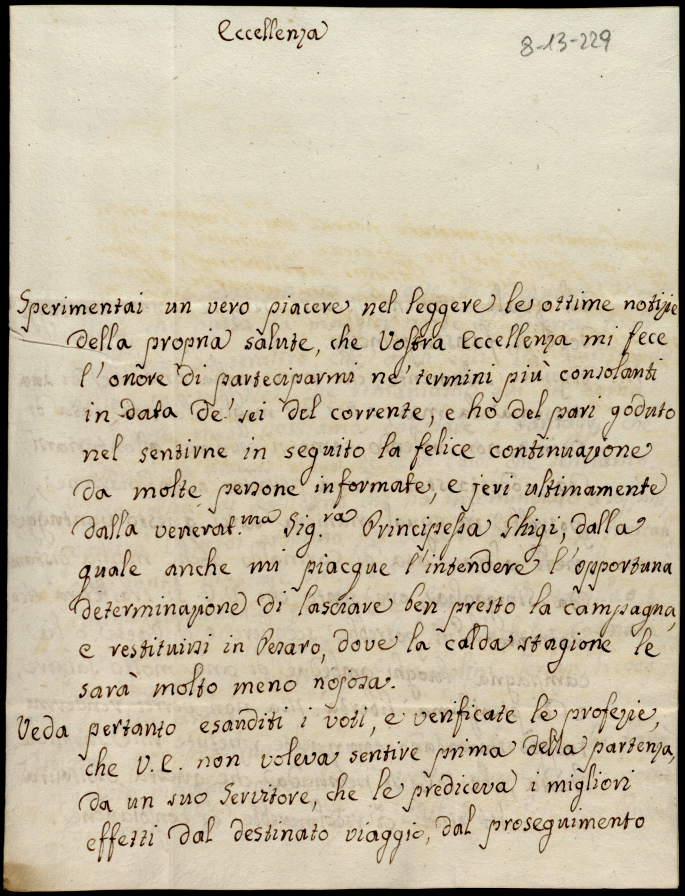 Eccellenza
8-13-229
Sperimentai un vero piacere nel leggere le ottime notizie
della propria salute, che Vostra Eccellenza mi fece
l'onore di parteciparmi ne' termini più consolanti
in data de' sei del corrente, e hò del pari goduto
nel sentirne in seguito la felice continuazione
da molte persone informate, e jeri ultimamente
dalla venerat.ma Sig.ra Principessa Ghigi, dalla
quale anche mi piacque l'intendere l'opportuna
determinazione di lasciare ben presto la campagna,
e restituirsi in Pesaro, dove la calda stagione le
sarà molto meno nojosa.
Veda pertanto esauditi i voti, e verificate le profezie,
che V.E. non voleva sentire prima della partenza,
da un suo Servitore, che le prediceva i migliori
effetti dal destinato viaggio, dal proseguimento